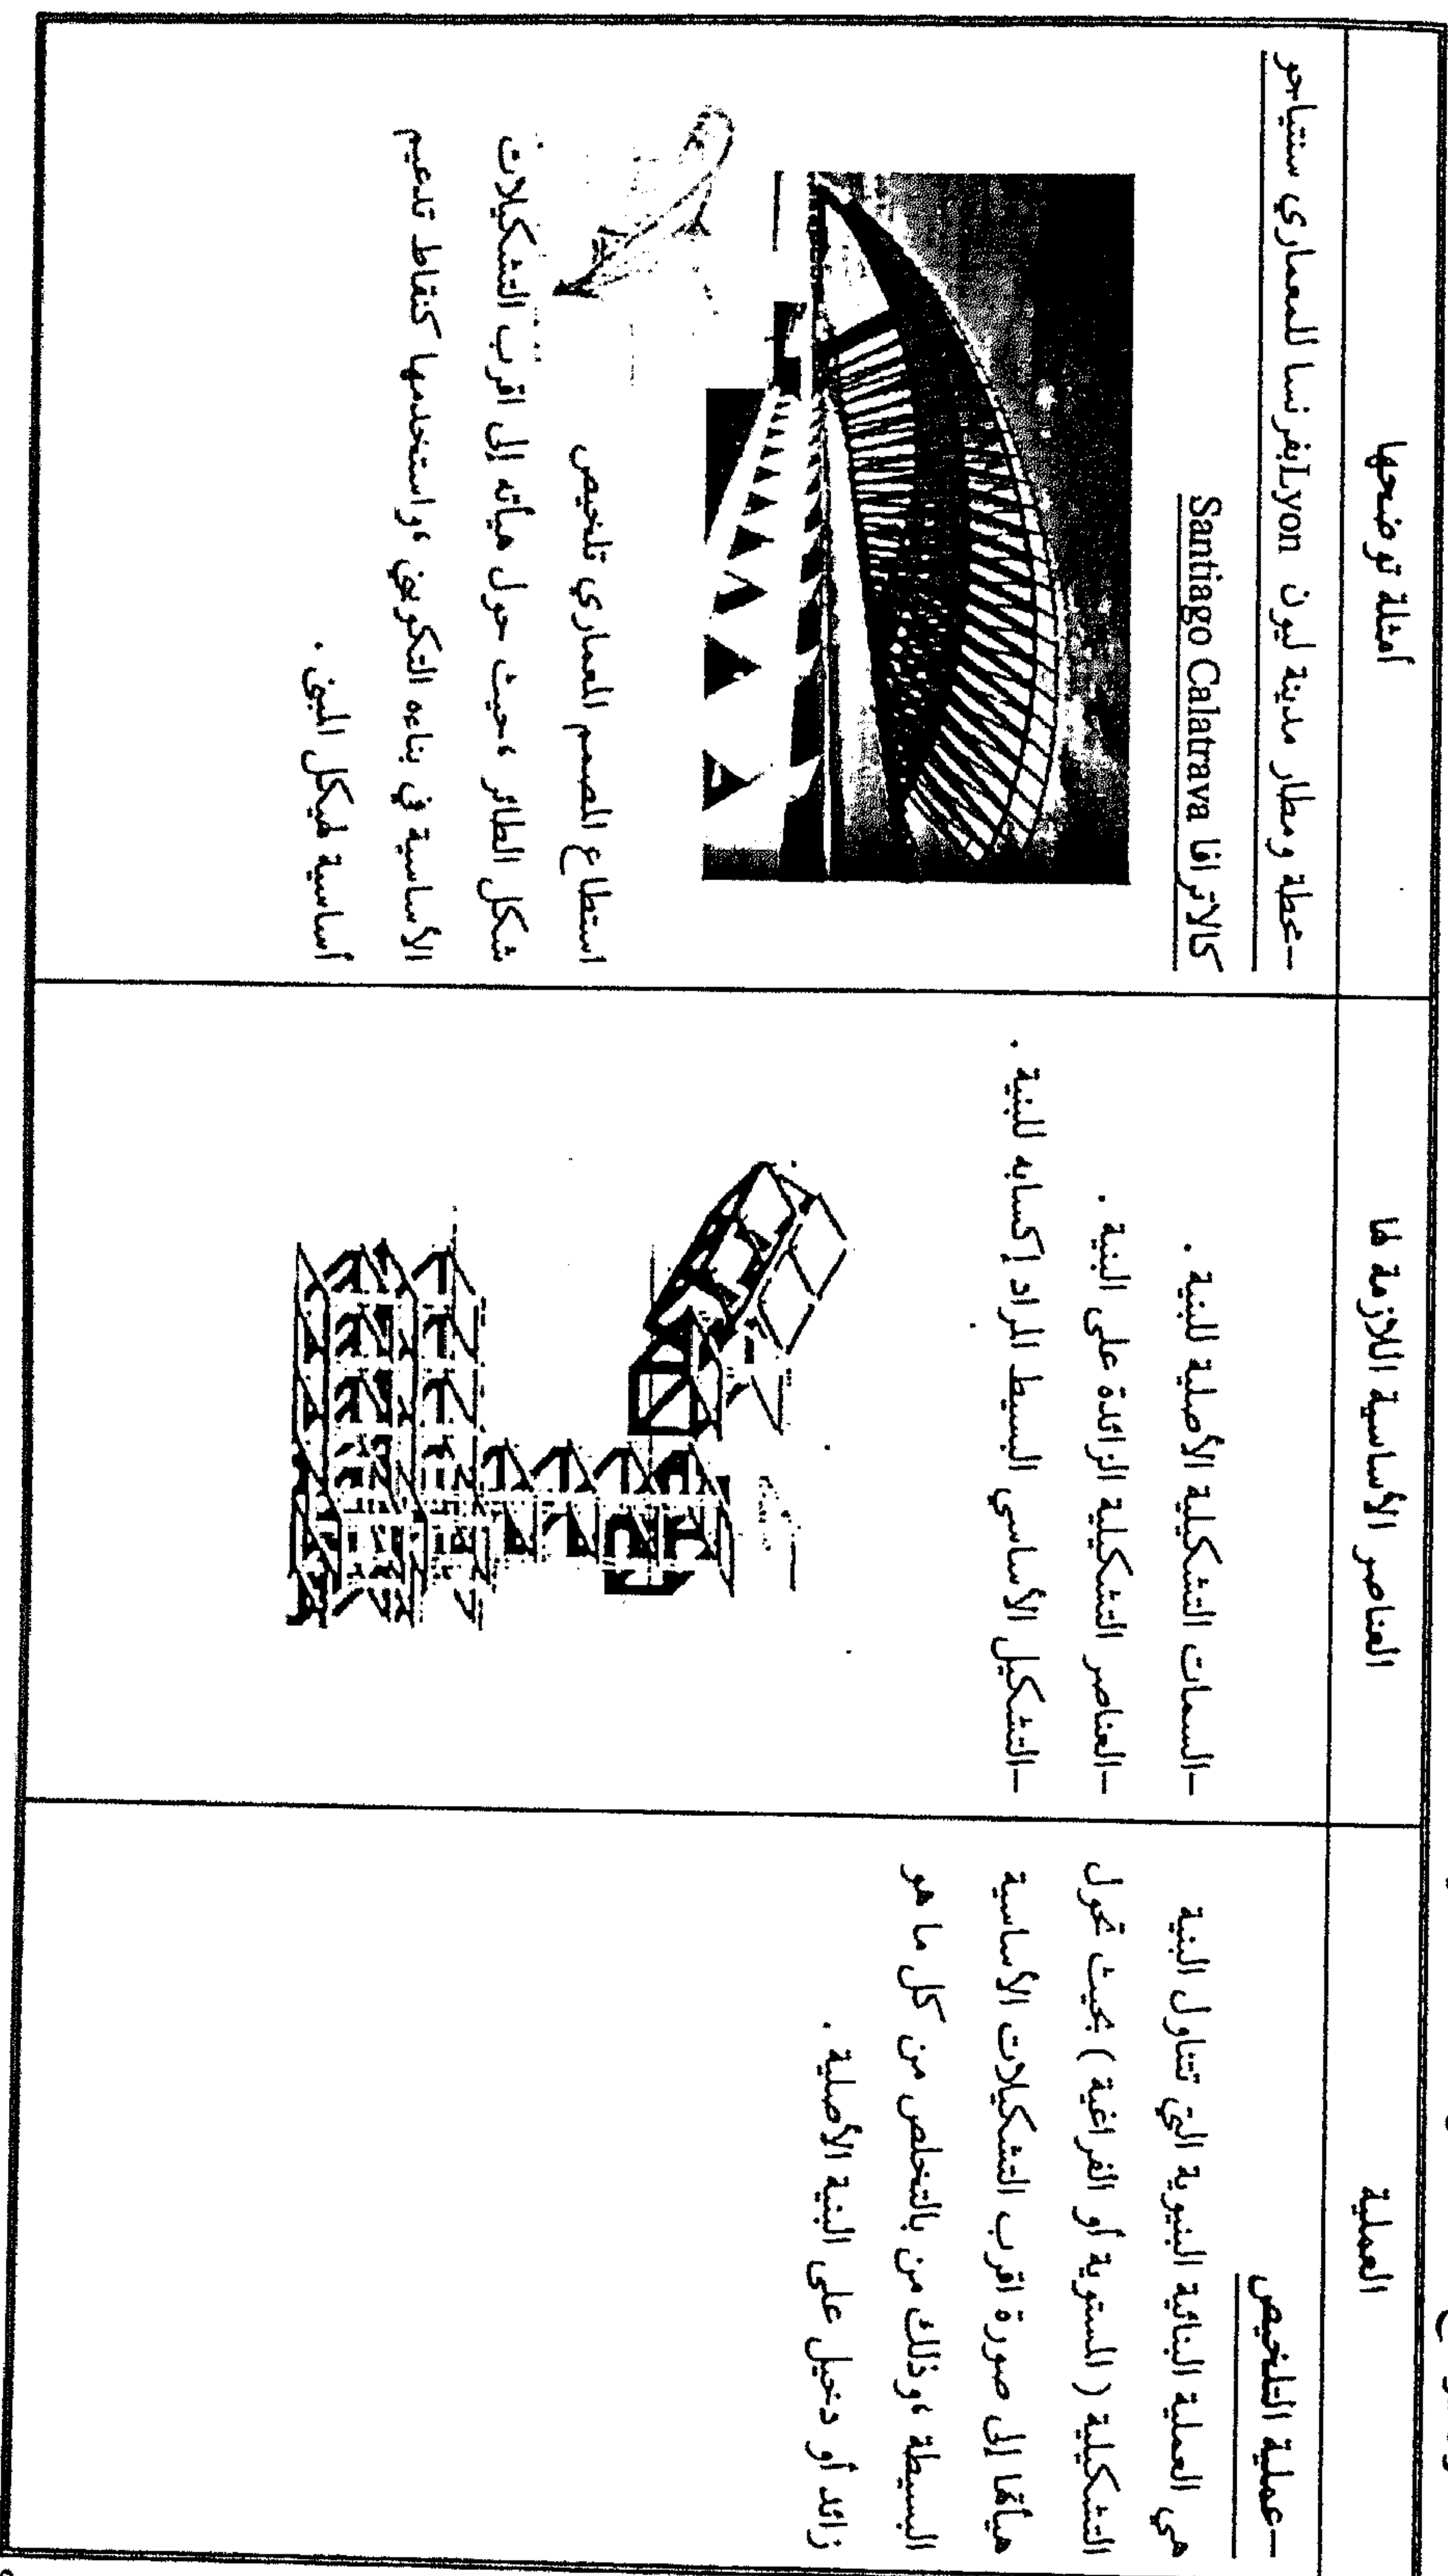 العملية
العناصر الأساسية اللازمة لها
أمثلة توضحها
–عملية التلخيص
هي العملية البنائية البنيوية التي تتناول البنية
التشكيلية ( المستوية أو الفراغية ) بحيث تحول
هيأتها إلى صورة اقرب التشكيلات الأساسية
البسيطة ،وذلك من بالتخلص من كل ما هو
زائد أو دخيل على البنية الأصلية .
–السمات التشكيلية الأصلية للبنية .
–العناصر التشكيلية الزائدة على البنية .
–التشكيل الأساسي البسيط المراد إكسابه للبنية .
–محطة ومطار مدينة ليون Lyonبفرنسا للمعماري سنتياجو
كالاترافا Santiago Calatrava
استطاع المصمم المعماري تلخيص
شكل الطائر ،حيث حول هيأته إلى اقرب التشكيلات
الأساسية في بناءه التكويني ،واستخدمها كنقاط تدعيم
أساسية لهيكل المبنى .